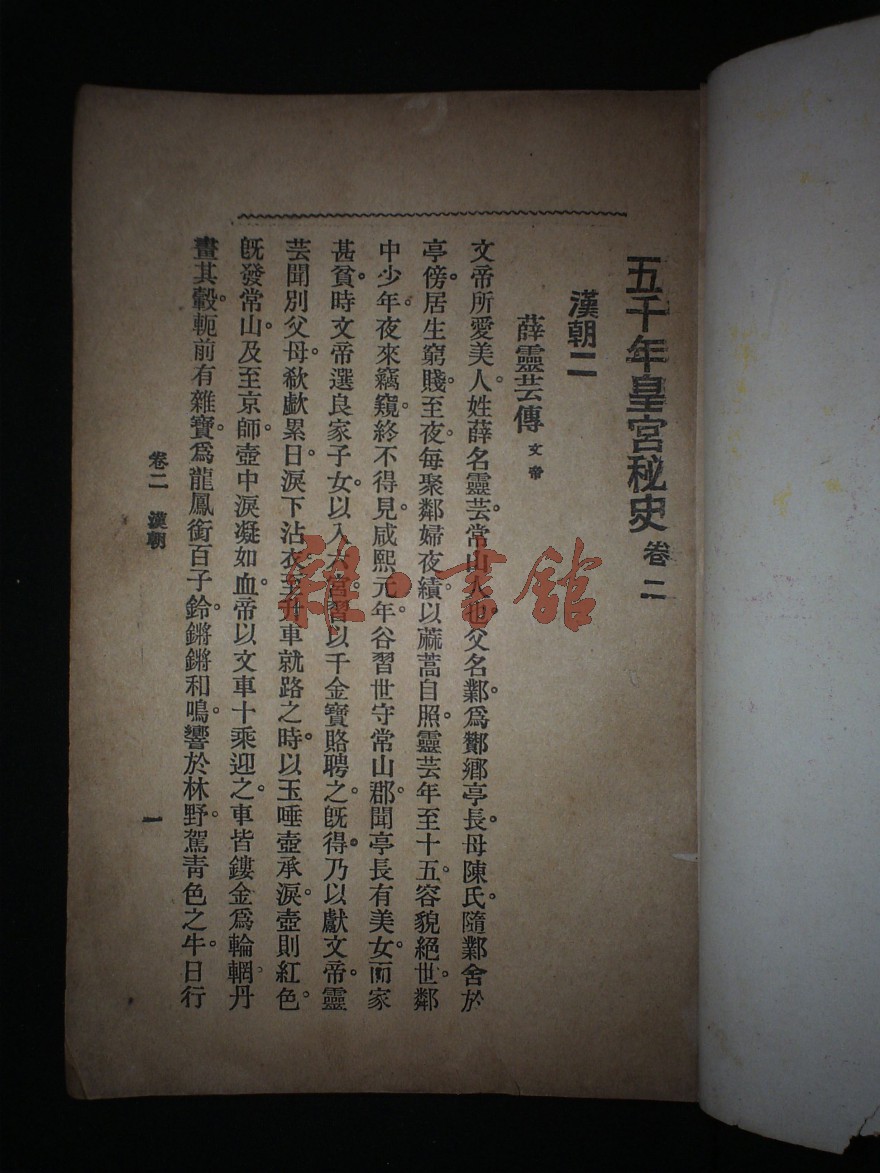 五千年皇宮秘史 卷二
漢朝二
薛靈芸傳 文帝
文帝所愛美人。姓薛名靈芸。常山人也。父名鄴。爲酇鄉亭長。母陳氏。隨鄴舍於
亭傍。居生窮賤。至夜。每聚鄰婦夜績。以蔴蒿自照。靈芸年至十五。容貌絕世。鄰
中少年夜來竊窺。終不得見。咸熙元年。谷習世守常山郡。聞亭長有美女。而家
甚貧。時文帝選良家子女。以入六宮。習以千金寶賂聘之。旣得。乃以獻文帝。靈
芸聞別父母。欷歔累日。淚下沾衣。至升車就路之時。以玉唾壺承淚。壺則紅色。
旣發常山。及至京師。壺中淚凝如血。帝以文車十乘迎之。車皆鏤金爲輪輞。丹
畫其轂。軛前有雜寶。爲龍鳳銜百子鈴。鏘鏘和鳴。響於林野。駕靑色之牛。日行
卷二 漢朝
一
雜·書館